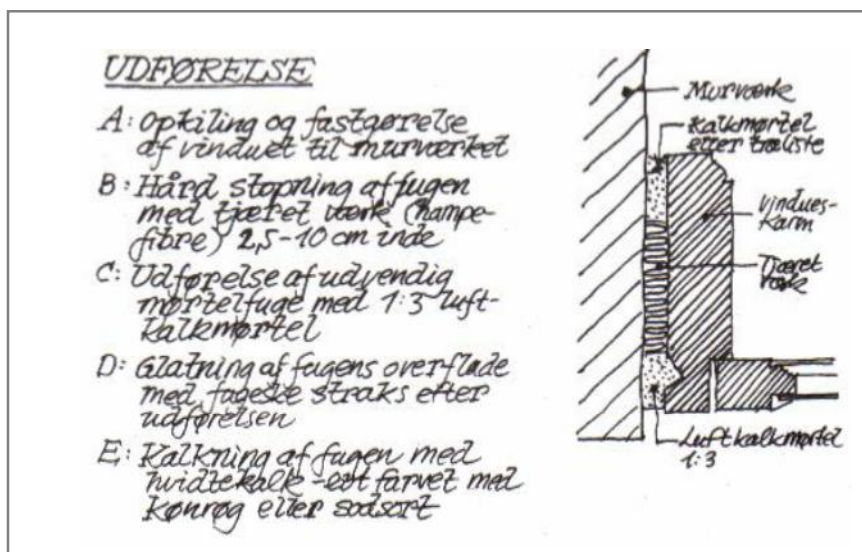 UDFØRELSE
A: Opkiling og fastgørelse
af vinduet til murværket
B: Hård stopning af fugen
med tjæret værk (hampe-
fibre) 2,5-10 cm inde
C: Udførelse af udvendig
mørtelfuge med 1:3 luft-
kalkmørtel
D: Glatning af fugens overflade
med fugeske straks efter
udførelsen
E: Kalkning af fugen med
hvidtekalk - evt farvet med
kønrøg eller sodsort
Murværk
Kalkmørtel
eller træliste
Vindues-
karm
Tjæret
værk
Luftkalkmørtel
1:3